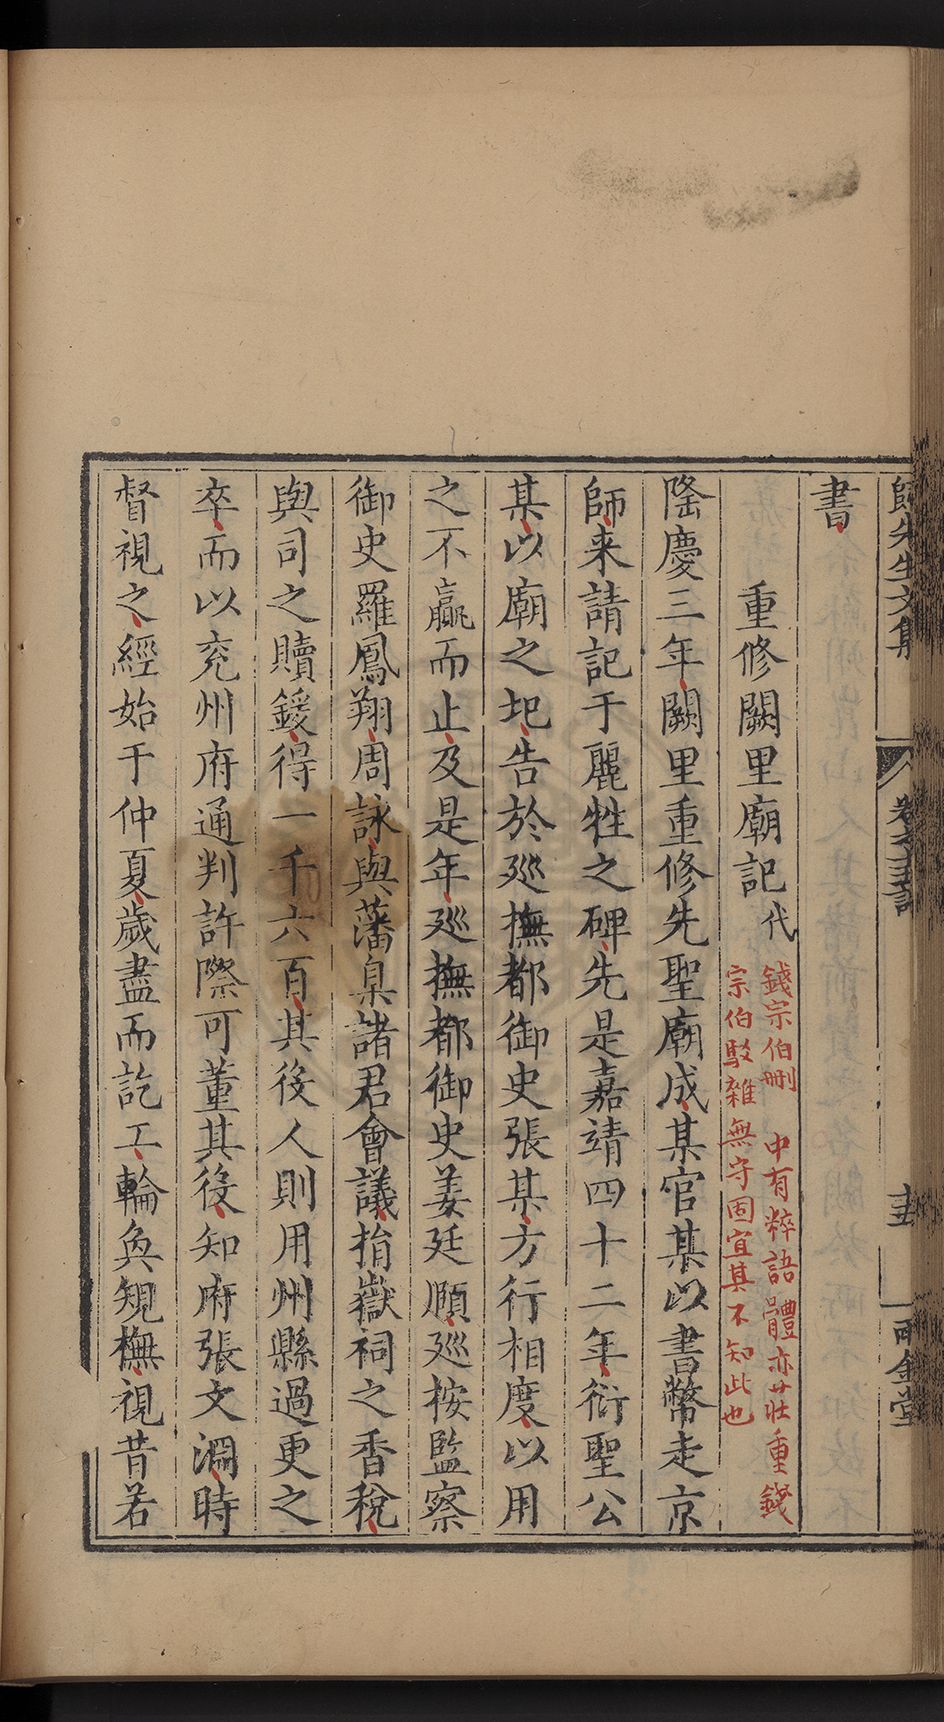 歸先生文集
卷之主記
雨金堂
書
重修闕里廟記代
錢宗伯刪　中有粹語體亦莊重錢
宗伯駁雜無守固宜其不知此也
隆慶三年闕里重修先聖廟成某官某以書幣走京
師来請記于麗牲之碑先是嘉靖四十二年衍聖公
某以廟之圯告於廵撫都御史張某方行相度以用
之不贏而止及是年廵撫都御史姜廷頤廵按監察
御史羅鳳翔周詠與藩臬諸君會議捐嶽祠之香稅
與司之贖鍰得一千六百其後人則用州縣過更之
卒而以兖州府通判許際可董其役知府張文淵時
督視之經始于仲夏歲盡而訖工輪奐規橅視昔若